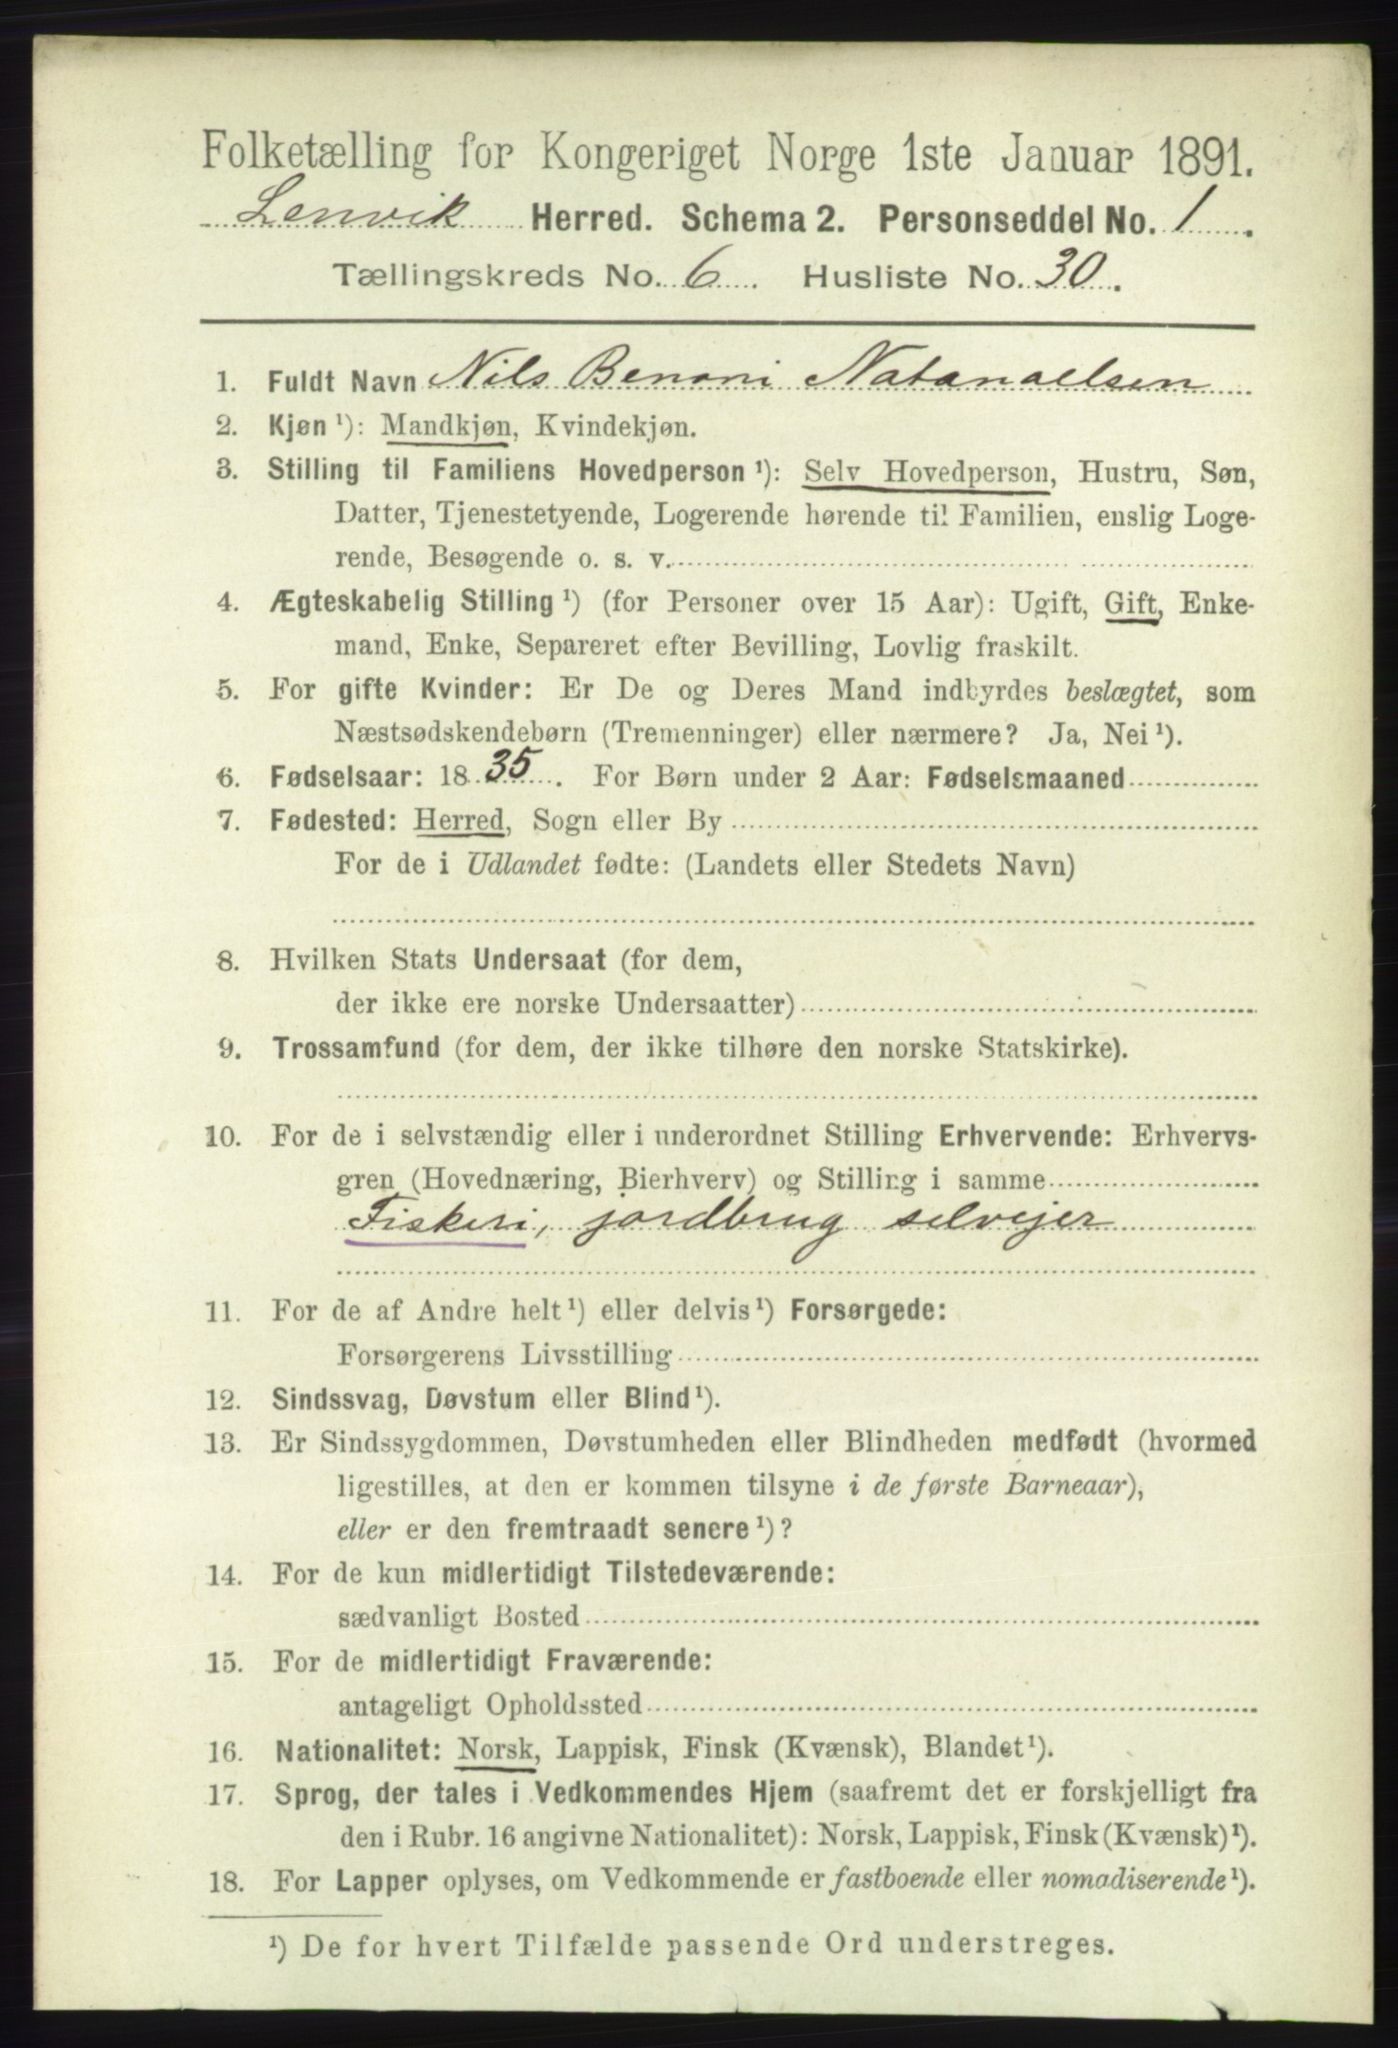 Folketælling for Kongeriget Norge 1ste Januar 1891.
Lenvik Herred. Schema 2. Personseddel No. 1.
Tællingskreds No. 6. Husliste No. 30.
1. Fuldt Navn Nils Benoni Natanaelsen
2. Kjøn ¹): Mandkjøn, Kvindekjøn.
3. Stilling til Familiens Hovedperson ¹): Selv Hovedperson, Hustru, Søn,
Datter, Tjenestetyende, Logerende hørende til Familien, enslig Loge-
rende, Besøgende o. s. v.
4. Ægteskabelig Stilling ¹) (for Personer over 15 Aar): Ugift, Gift, Enke-
mand, Enke, Separeret efter Bevilling, Lovlig fraskilt.
5. For gifte Kvinder: Er De og Deres Mand indbyrdes beslægtet, som
Næstsødskendebørn (Tremenninger) eller nærmere? Ja, Nei ¹).
6. Fødselsaar: 18 35. For Børn under 2 Aar: Fødselsmaaned
7. Fødested: Herred, Sogn eller By
For de i Udlandet fødte: (Landets eller Stedets Navn)
8. Hvilken Stats Undersaat (for dem,
der ikke ere norske Undersaatter)
9. Trossamfund (for dem, der ikke tilhøre den norske Statskirke).
10. For de i selvstændig eller i underordnet Stilling Erhvervende: Erhvervs-
gren (Hovednæring, Bierhverv) og Stilling i samme
Fiskeri, jordbrug selvejer
11. For de af Andre helt ¹) eller delvis ¹) Forsørgede:
Forsørgerens Livsstilling
12. Sindssvag, Døvstum eller Blind ¹).
13. Er Sindssygdommen, Døvstumheden eller Blindheden medfødt (hvormed
ligestilles, at den er kommen tilsyne i de første Barneaar),
eller er den fremtraadt senere ¹)?
14. For de kun midlertidigt Tilstedeværende:
sædvanligt Bosted
15. For de midlertidigt Fraværende:
antageligt Opholdssted
16. Nationalitet: Norsk, Lappisk, Finsk (Kvænsk), Blandet ¹).
17. Sprog, der tales i Vedkommendes Hjem (saafremt det er forskjelligt fra
den i Rubr. 16 angivne Nationalitet): Norsk, Lappisk, Finsk (Kvænsk) ¹).
18. For Lapper oplyses, om Vedkommende er fastboende eller nomadiserende ¹).
¹) De for hvert Tilfælde passende Ord understreges.